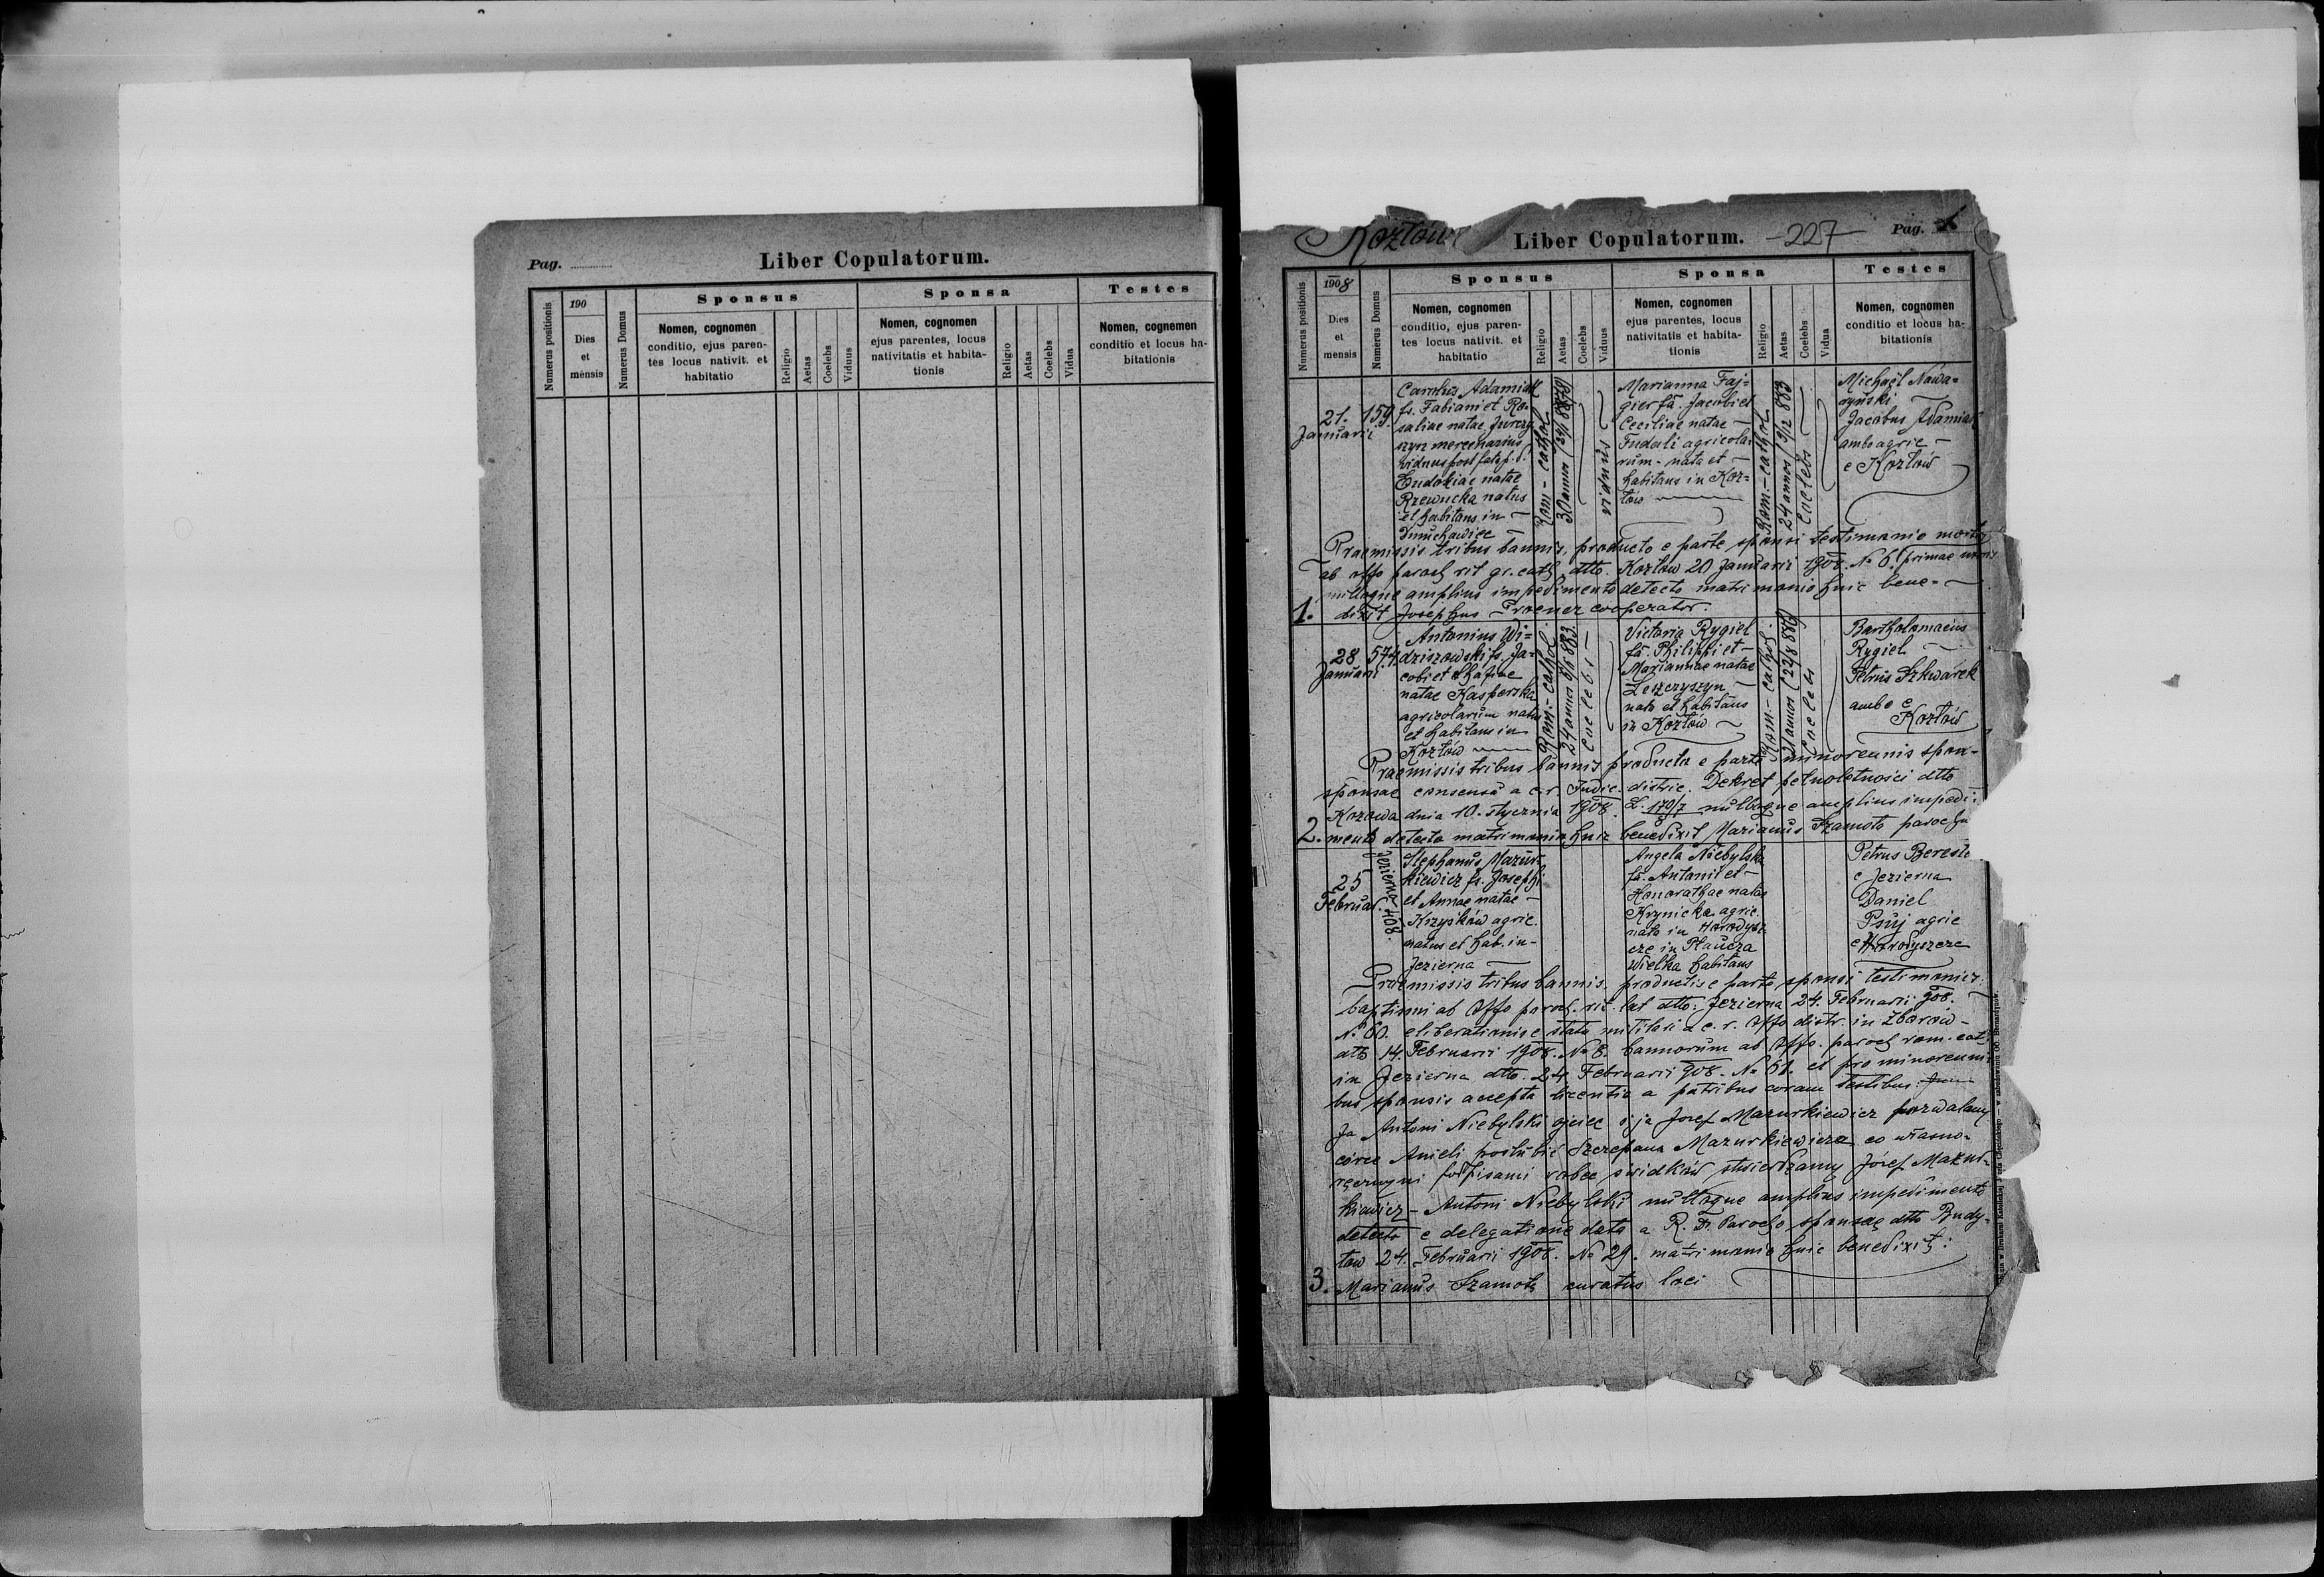 Pag.
Liber Copulatorum.
Numerus positionis
190
Dies
et
mensis
Numerus Domus
Sponsus
Nomen, cognomen
conditio, ejus paren-
tes locus nativit. et
habitatio
Religio
Aetas
Coelebs
Viduus
Sponsa
Nomen, cognomen
ejus parentes, locus
nativitatis et habita-
tionis
Religio
Aetas
Coelebs
Vidua
Testes
Nomen, cognemen
conditio et locus ha-
bitationis
Kozłów
Liber Copulatorum.
-227-
Pag.
Numerus positionis
1908
Dies
et
mensis
Numerus Domus
Sponsus
Nomen, cognomen
conditio, ejus paren-
tes locus nativit. et
habitatio
Religio
Aetas
Coelebs
Viduus
Sponsa
Nomen, cognomen
ejus parentes, locus
nativitatis et habita-
tionis
Religio
Aetas
Coelebs
Vidua
Testes
Nomen, cognomen
conditio et locus ha-
bitationis
21.
Januarii
159.
Carolus Adamiak
fs. Fabiani et Ro-
saliae natae
mercenarius
viduus post
Eudokiae natae
Rzewucka natus
et habitans in
Rom-cathol
30 annor
viduus
Marianna Faj-
gier fa. Jacobi et
Ceciliae natae
Fudali agricola-
rum - nata et
habitans in Koz-
łów
Rom-cathol
24 annor 9/12 883
Caelebs
Michaël Nawa-
ryński
Jacobus Adamiak
ambo agric
e Kozłów
Praemissis tribus bannis, producto e parte sponsi testimonio mortis
ab offo paroch rit gr. cath. dtto. Kozłów 20 Januarii 1908. No 6. primae uxoris
nulloque amplius impedimento detecto matrimonio huic bene-
1. dixit Josephus Procner cooperator.
28
Januarii
574.
Antonius Wi-
dziszowski fs. Ja-
cobi et
natae Kasperska
agricolarum natus
et habitans in
Kozłów
Rom-cathol
24 annor 883.
Caelebs
Victoria Rygiel
fa. Philippi et
Mariannae natae
Leszczyszyn
nata et habitans
in Kozłów
Rom-cathol
21 annor (22/8 886)
Caelebs
Bartholomaeus
Rygiel
Petrus Szkwarek
ambo e
Kozłów
Praemissis tribus bannis producta e parte minorennis spon-
sponsae consensu a c.r. Judic. distric. Dekret pełnoletności dtto
Kozowa dnia 10. stycznia 1908. L. nulloque amplius impedi-
2. mento detecto matrimonio huic benedixit Marianus Szamota
25
Februar.
Jezierna 408.
Stephanus Mazur-
kiewicz fs. Josephi
et Annae natae
Krzyśków agric.
natus et hab. in
Jezierna
Angela Niebylska
fa. Antonii et
Honorathae natae
Krynicka agric.
nata in Horodysz-
cze in Płaucza
Wielka habitans
Petrus
e Jezierna
Daniel
Psuj agric
e Horodyszcze
Praemissis tribus bannis, productis e parte sponsi testimoniis
baptismi ab Offo paroch. rit. lat dtto: Jezierna 24. Februarii 908.
No 60. eliberationis e statu militari a c.r. Offo distr. in Zborów
dtto 14. Februarii 1908. No 8. bannorum ab Offo. paroch rom. cat.
in Jezierna dtto. 24. Februarii 908. No 61. et pro minorenni-
bus sponsis accepta licentia a patribus coram testibus:
Ja Antoni Niebylski ojciec i ja Josef Mazurkiewicz pozwalamy
córce Anieli poślubić Szczepana Mazurkiewicza co własno-
ręcznymi podpisami wobec świdków stwierdzamy Józef Mazur-
kiewicz - Antoni Niebylski nulloque amplius impedimento
detecto e delegatione data a R. D. Parocho sponsae dtto Budy-
łów 24. Februarii 1908. No 29. matrimonio huic benedixit:
3. Marianus Szamota curatus loci